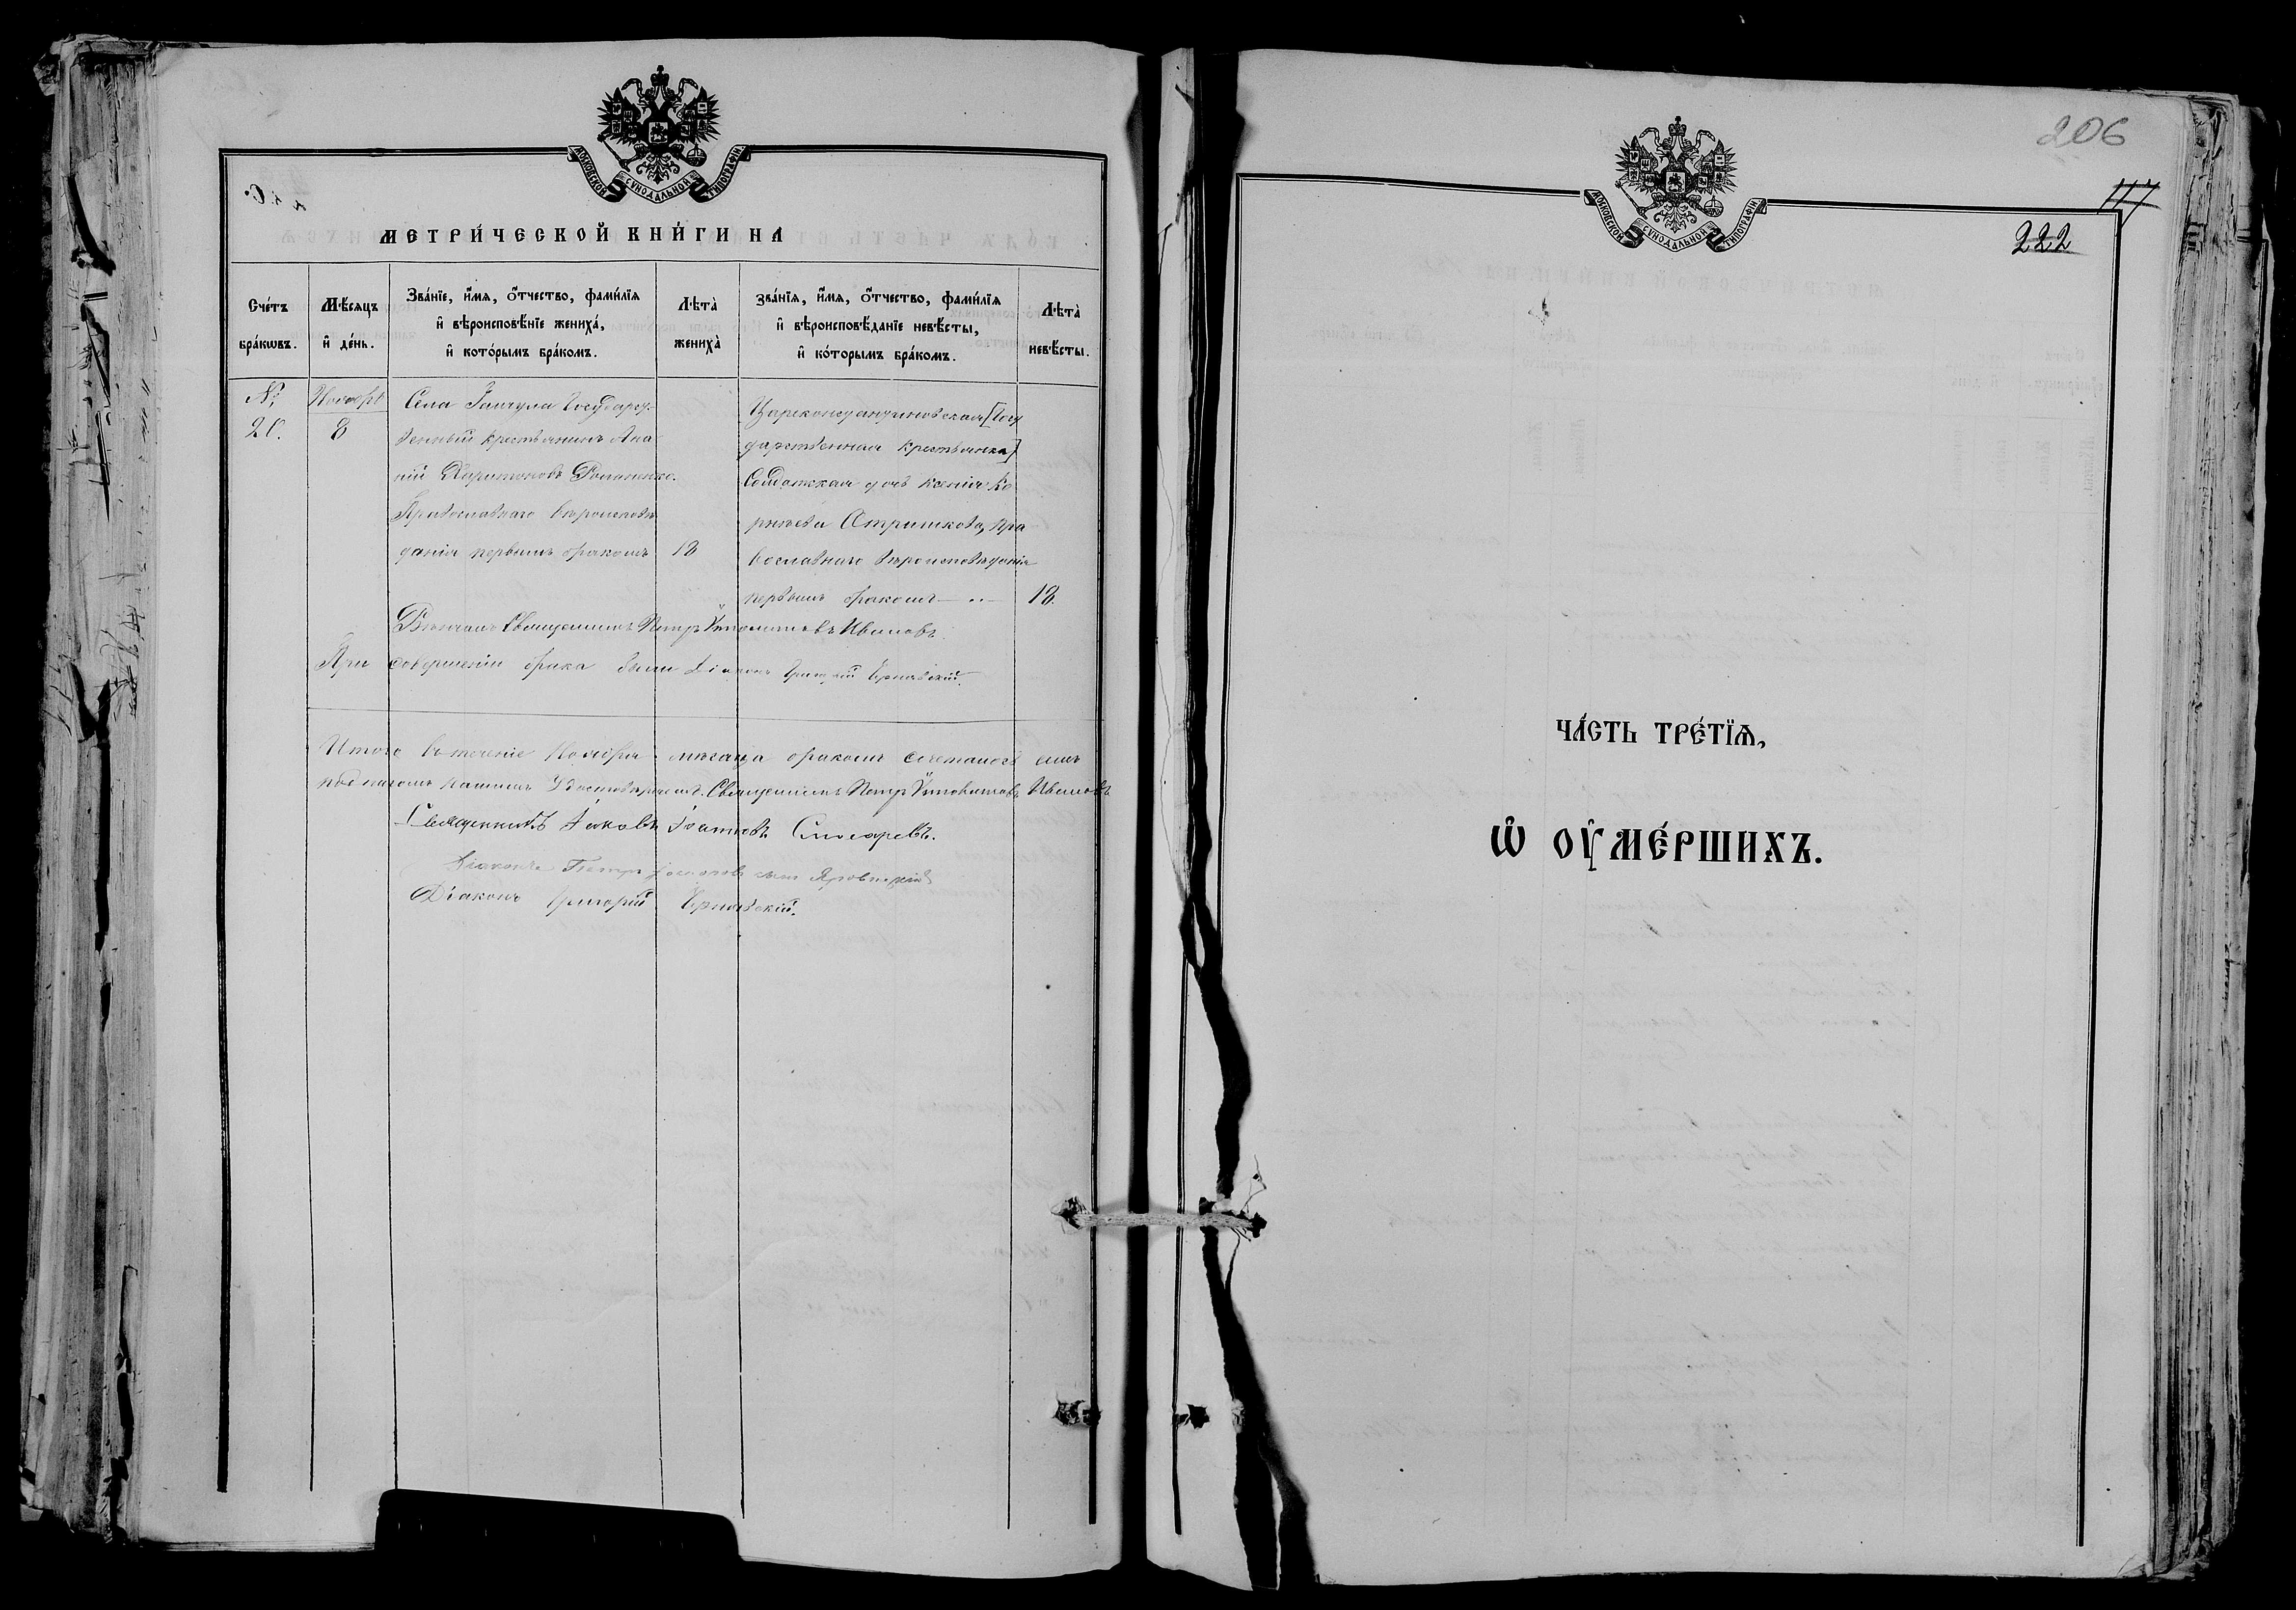 МОСКОВСКОЙ СѴНОДАЛЬНОЙ ТИПОГРАФІИ
МЕТРИ́ЧЕСКОЙ КНИ́ГИ НА
Сче́тъ бра́кѡвъ.
Мѣ́сяцъ и҆ де́нь.
Зва́нїе, и҆́мѧ, ѻ҆́тчество, фами́лїѧ
и҆ вѣроисповѣ́нїе жениха́,
и҆ кото́рымъ бра́комъ.
Лѣ́та̀ жениха̀
Зва́нїѧ, и҆́мѧ, ѻ҆́тчество, фами́лїѧ
и҆ вѣроисповѣ́данїе невѣ́сты,
и҆ ко́торымъ бра́комъ.
Лѣ́та̀ невѣ́сты.
№
20.
Ноябрь
8
Села Государс-
твенный крестьянинъ Ана-
ній Харитоновъ Романенко.
Православнаго вѣроисповѣ
данія первымъ бракомъ
18
Цареконстантиновская [Госу
дарственная крестьянка]
Солдатская дочь Ксенія Ко
рнѣева пра
вославнаго вѣроисповѣданія
первымъ бракомъ
18.
Вѣнчалъ Священникъ Петръ Ивановъ.
При совершеніи брака были Діаконъ Григорій
Итого въ теченіе Ноября мѣсяца бракомъ сочеталось
Священникъ Петръ Ивановъ
Священникъ Іаковъ Слюсаревъ.
Діаконъ Петръ
Діаконъ Григорій
206
117
222
МОСКОВСКОЙ СѴНОДАЛЬНОЙ ТИПОГРАФІИ
ЧА́СТЬ ТРЕ́ТЇѦ,
Ѡ҆ ОУ҆МЕ́РШИХЪ.